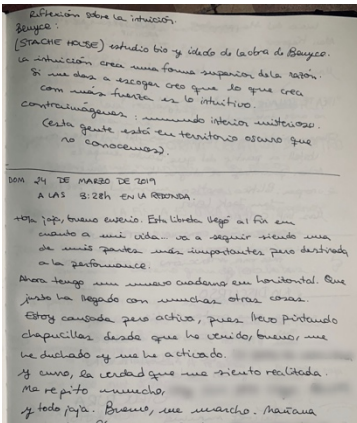 Reflexión sobre la intuición.
Beuyce:
(STACHE HOUSE) estudio bio y idedo de la obra de Beuyce.
la intuición crea una forma superior de la razón.
Si me das a escoger creo que lo que crea
con más fuerza es lo intuitivo.
contraimágenes: mundo interior misterioso.
(esta gente está en territorio oscuro que
no conocemos).
DOM 24 DE MARZO DE 2019
A LAS 8:28h EN LA REDONDA.
jaja, bueno Esta libreta llegó al fin en
cuanto a mi vida... va a seguir siendo una
de mis partes más importantes pero destinada
a la performance.
Ahora tengo un nuevo cuaderno en horitontal. Que
justo ha llegado con munchas otras cosas.
Estoy cansada pero activa, pues llevo pintando
chapucillas desde que he venido, bueno, me
he duchado y me he activado.
y la verdad que me siento realitada.
Me repito muncho,
y todo jaja. Bueno, me marcho. Mañana